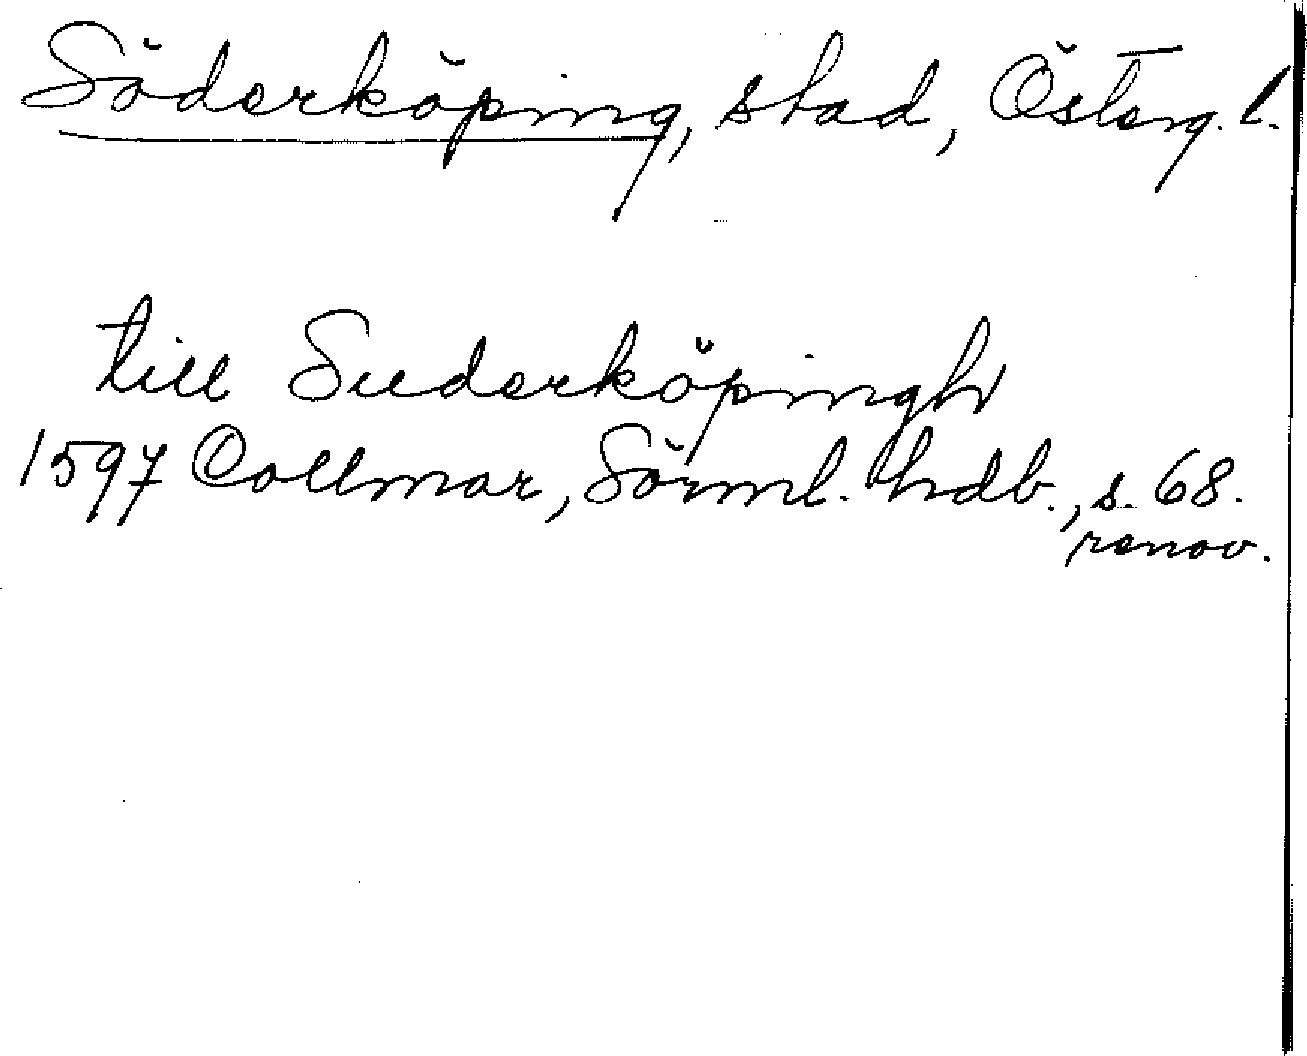 Söderköping, stad, Österg. l.
till Suderköpingh
1597 Collmar, Sörml. hdb., s. 68.
renov.